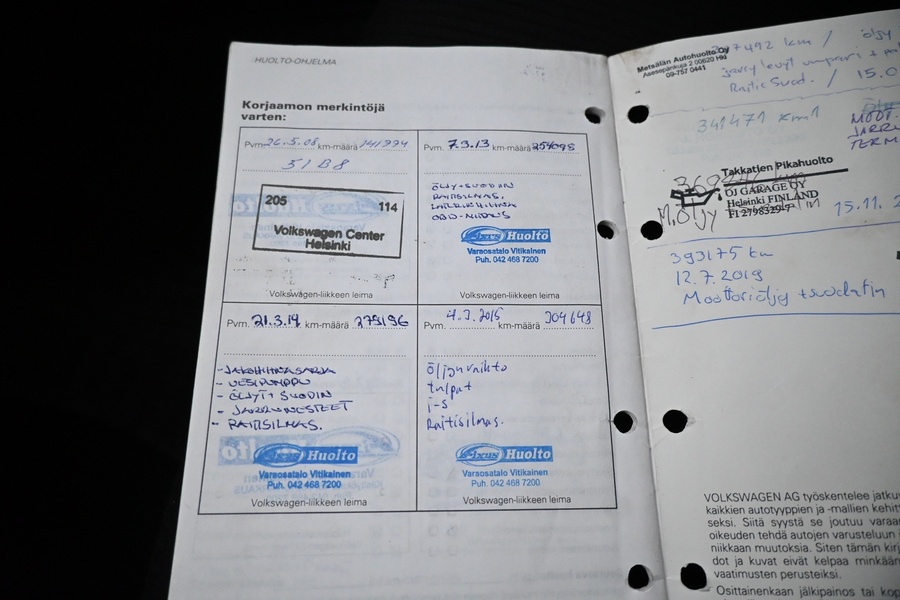 HUOLTO-OHJELMA
Korjaamon merkintöjä
varten:
Pvm. 26.5.05 km-määrä 141994
51 B8
205 114
Volkswagen Center
Helsinki
Volkswagen-liikkeen leima
Pvm. 7.3.13 km-määrä
ÖLJY+SUODIN
RAITISILMAS.
Huolto
Varaosatalo Vitikainen
Puh. 042 468 7200
Volkswagen-liikkeen leima
Pvm. 21.3.14 km-määrä 279196
- JAKOHIHNASARJA
- VESIPUMPPU
- ÖLJYT + SUODIN
- JARRUNESTEET
- RAITISILMAS.
Huolto
Varaosatalo Vitikainen
Puh. 042 468 7200
Volkswagen-liikkeen leima
Pvm. 4.3.2015 km-määrä 304648
öljynvaihto
tulpat
i-s
Raitisilmas.
Huolto
Varaosatalo Vitikainen
Puh. 042 468 7200
Volkswagen-liikkeen leima
Metsälän Autohuolto Oy
Asesepänkuja 2 00620 Hki
09-757 0441
7492 km / öljy
Raitis Suod. / 15.0
341471 km
MOOT.
JARRU
TERM
Takkatien Pikahuolto
OJ GARAGE OY
Helsinki FINLAND
FI 2798329-7
M.öljy
15.11.2
393175 km
12.7.2019
Moottoriöljy + suodatin
VOLKSWAGEN AG työskentelee jatku
kaikkien autotyyppien ja -mallien kehit
seksi. Siitä syystä se joutuu varaa
oikeuden tehdä autojen varusteluun
niikkaan muutoksia. Siten tämän kirj
dot ja kuvat eivät kelpaa minkään
vaatimusten perusteiksi.
Osittainenkaan jälkipainos tai kop